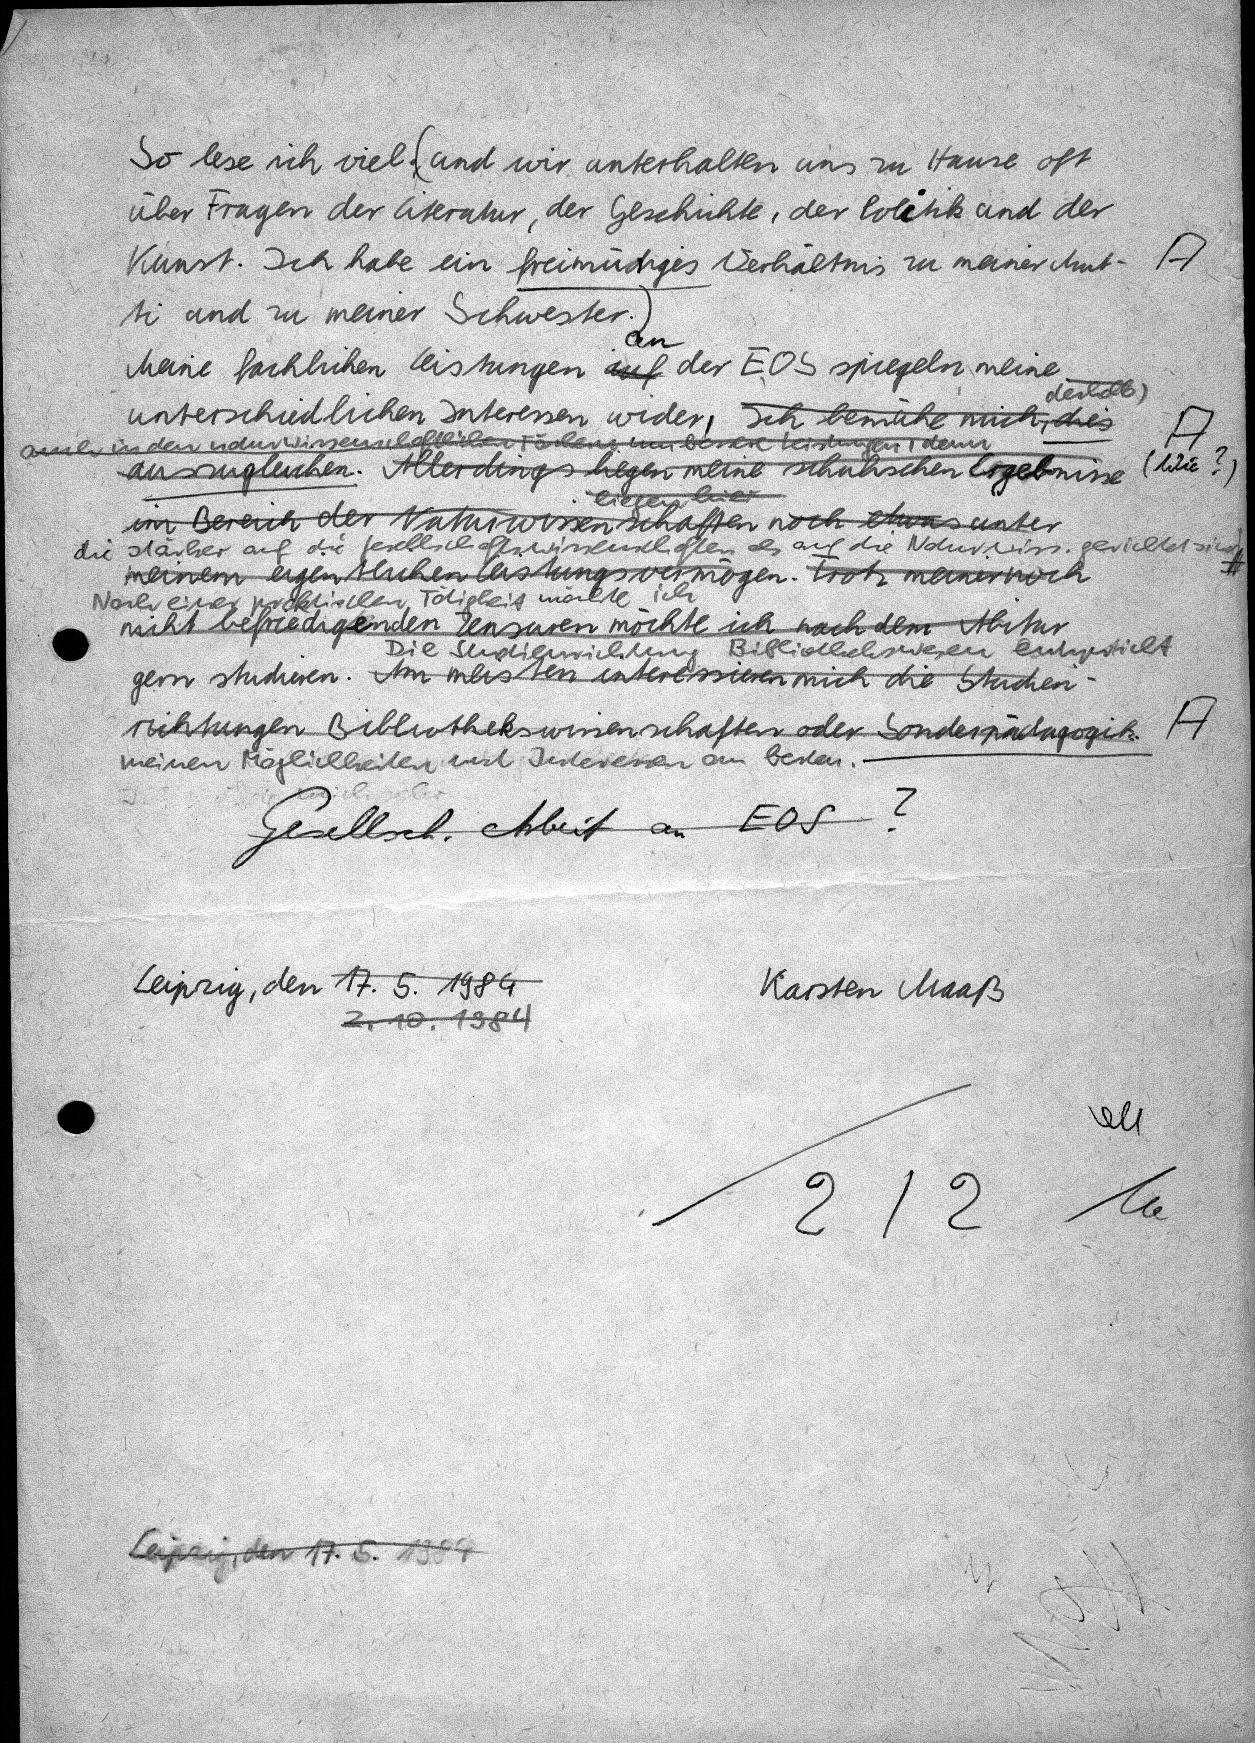 So lese ich viel. (und wir unterhalten uns zu Hause oft
über Fragen der Literatur, der Geschichte, der Politik und der
Kunst. Ich habe ein freimüdiges Verhältnis zu meiner Mut- A
ti und zu meiner Schwester.)
an
Meine fachlichen Leistungen auf der EOS spiegeln meine
deshalb)
unterschiedlichen Interessen wider, Ich bemühe mich, dies A
auch in den naturwissenschaftlichen Fächern um bessere Leistungen, denn
auszugleichen. Allerdings liegen meine schulischen Ergebnisse (Wie?)
liegen hier
im Bereich der Naturwissenschaften noch etwas unter
die stärker auf die Gesellschaftswissenschaften als auf die Naturwiss. gerichtet sind
meinem eigentlichen Leistungsvermögen. Trotz meiner noch #
Nach einer praktischen Tätigkeit möchte ich
nicht befriedigenden Zensuren möchte ich nach dem Abitur
Die Studienrichtung Bibliothekswesen entspricht
gern studieren. Am meisten interessieren mich die Studien-
richtungen Bibliothekswissenschaften oder Sonderpädagogik. A
meinen Möglichkeiten und Interessen am besten.
Gesellsch. Arbeit an EOS ?
Leipzig, den 17. 5. 1984 Karsten Maaß
2. 10. 1984
2 / 2
Leipzig, den 17. 5. 1984